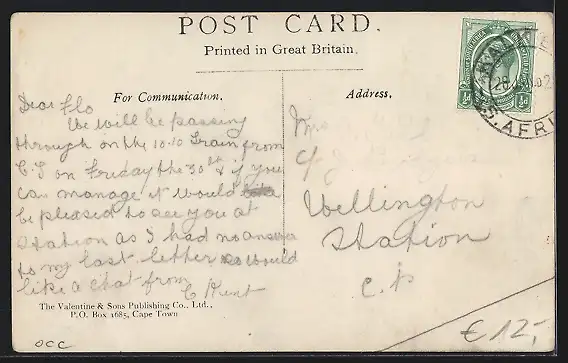 POST CARD.
Printed in Great Britain.
For Communication.
Address.
Dear Flo
We will be passing
through on the 10.10 train from
C.T on Friday the 30th & if you
can manage it would
be pleased to see you at
station as I had no answer
to my last letter so would
like a chat from
C Hunt
Mrs
Wellington
Station
C.P
S. AFRI
½d
The Valentine & Sons Publishing Co., Ltd.,
P.O. Box 1685, Cape Town
occ
€ 12,-